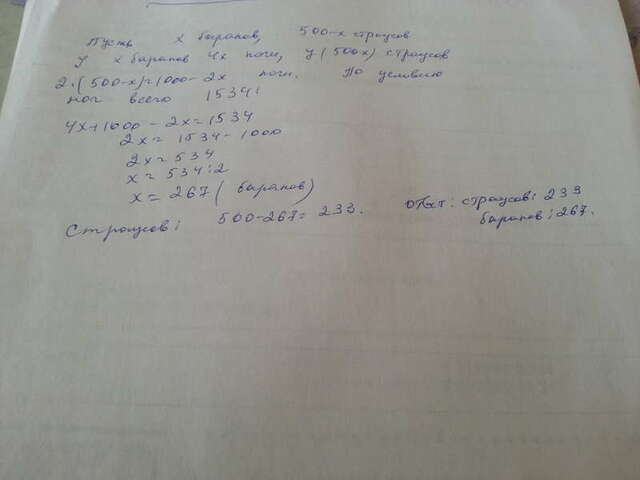 Пусть х баранов, 500-х страусов
У х баранов 4х ноги, у (500х) страусов
2·(500-х)=1000-2х ноги. По условию
ног всего 1534:
4х+1000-2х=1534
2х=1534-1000
2х=534
х=534:2
х=267( баранов)
Страусов: 500-267=233.
Ответ: страусов: 233
баранов: 267.